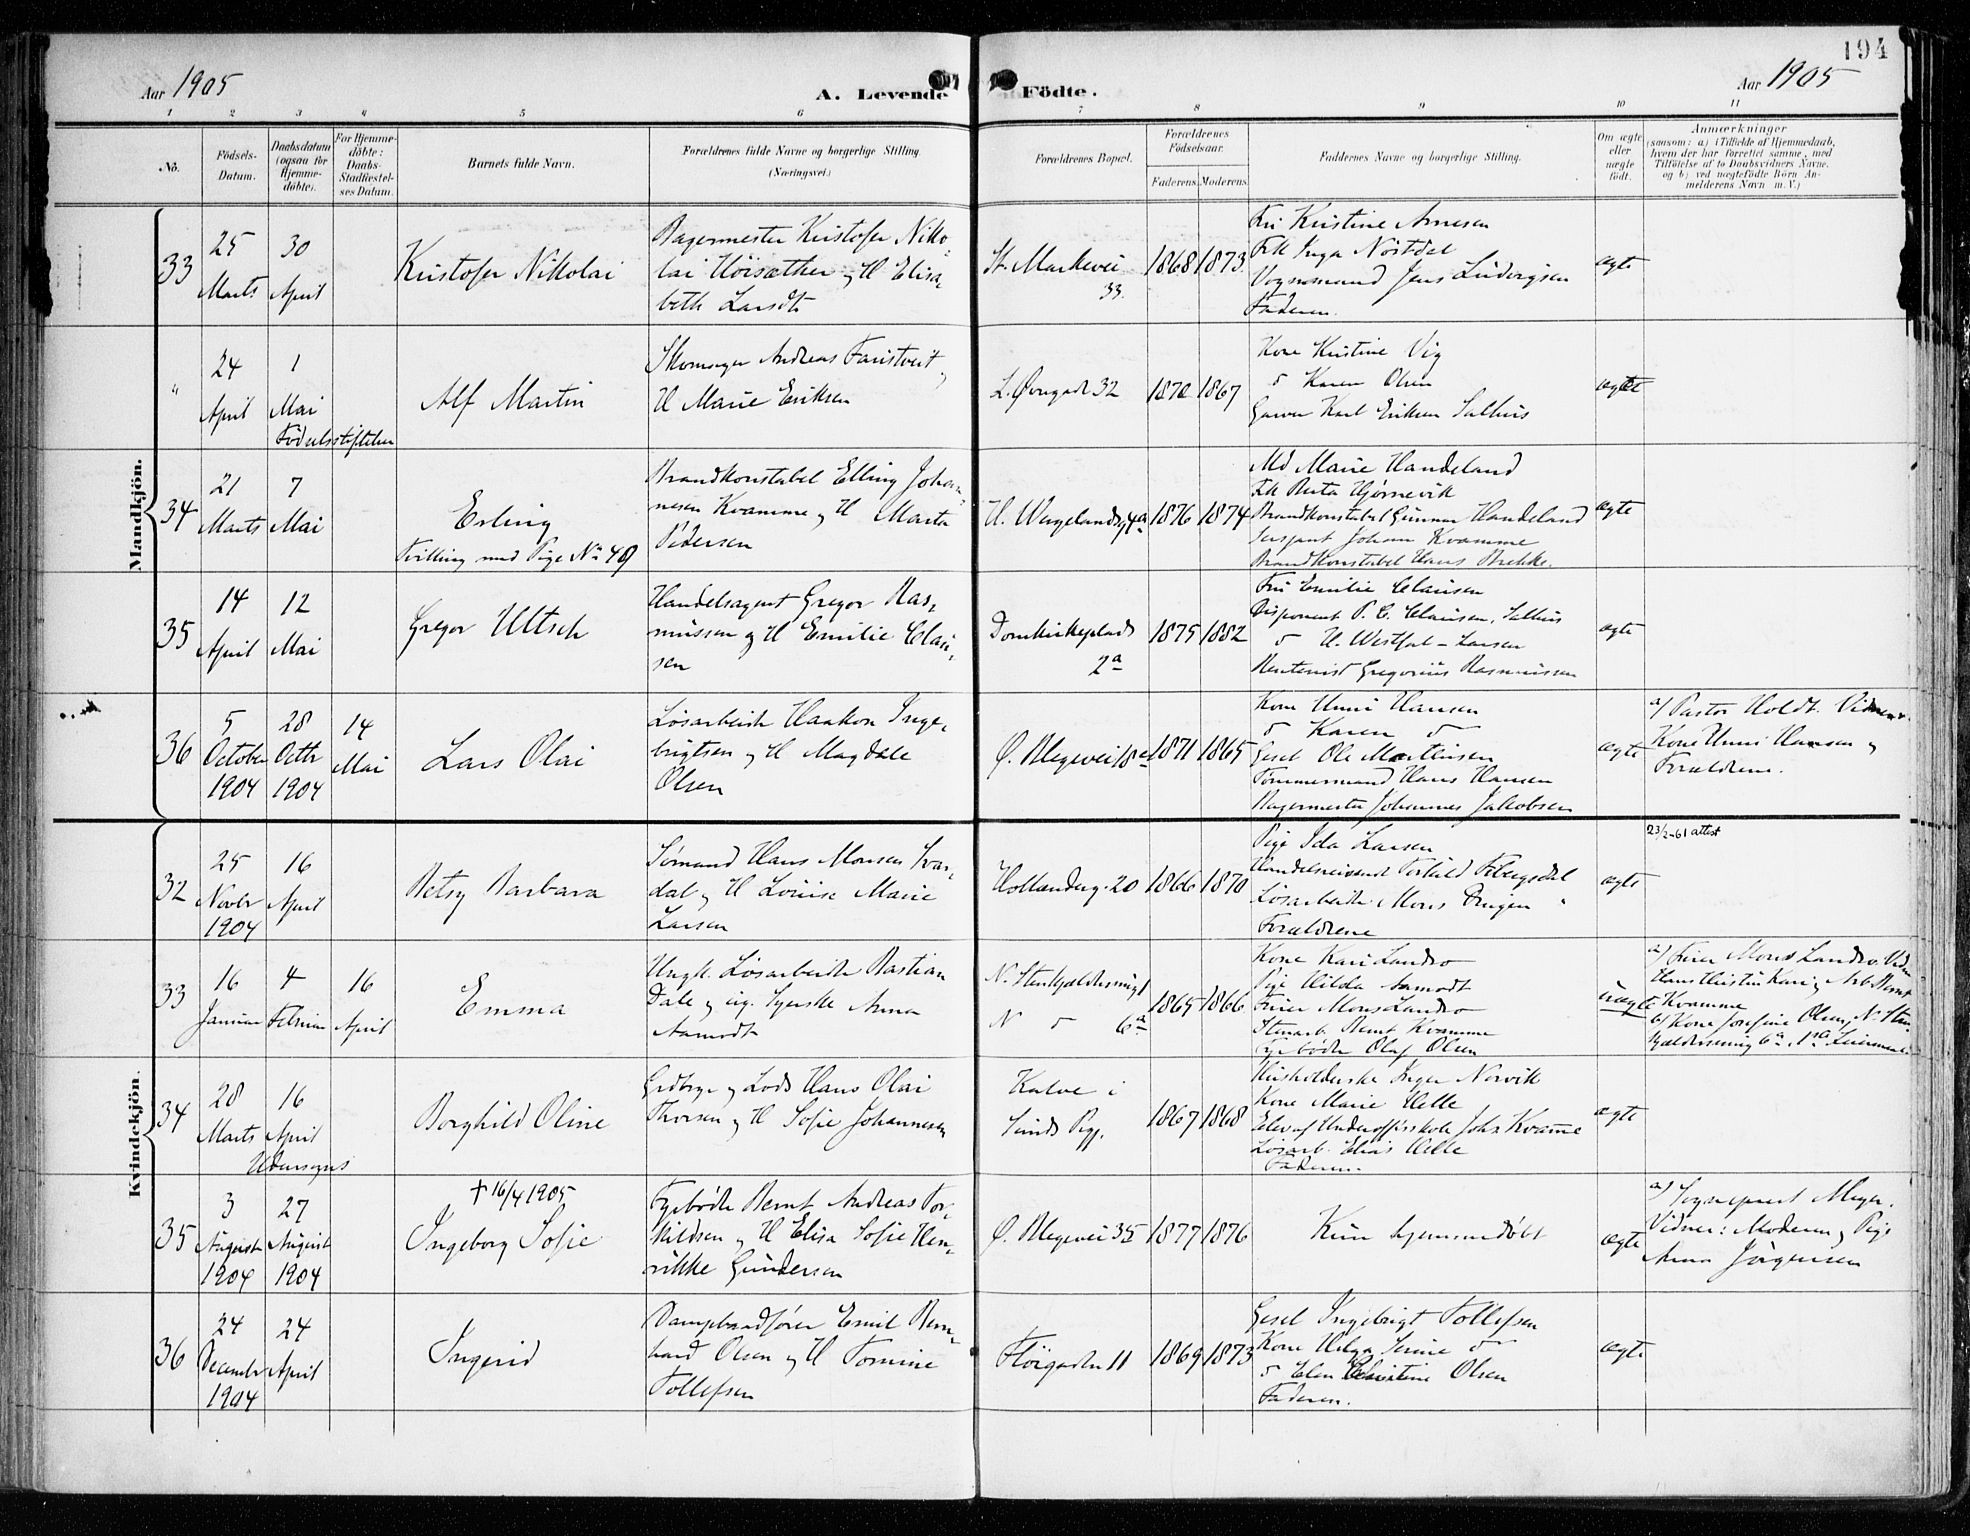 194
Aar 1905
A. Levende Födte.
Aar 1905
1 2 3 4 5 6 7 8 9 10 11
No.
Födsels-Datum.
Daabsdatum (ogsaa for Hjemme-döbte).
For Hjemme-döbte: Daabs-Stadfæstel-ses Datum.
Barnets fulde Navn.
Forældrenes fulde Navne og borgerlige Stilling.
(Næringsvei.)
Forældrenes Bopæl.
Forældrenes Födselsaar.
Faderens. Moderens.
Faddernes Navne og borgerlige Stilling.
Om ægte eller uægte födt.
Anmærkninger
(saasom: a) i Tilfælde af Hjemmedaab,
hvem der har forrettet samme, med
Tilföielse af to Daabsvidners Navne.
og b) ved uægtefödte Börn An-
melderens Navn m. V.)
Mandkjön.
33
25 Marts
30 April
Kristofer Nikolai
Bagermester Kristofer Niko-
lai Höisæther og H Elisa-
beth Larsdt
St. Markevei
33.
1868 1873
Fru Kristine Arnesen
Frk Inga Nöstdal
Vognmand Jens Ludvigsen
Faderen.
ægte
"
24 April
1 Mai
Födselsstiftelsen
Alf Martin
Skomager Andreas Faustveit og
H Marie Eriksen
L. Øvregade 32
1870 1867
Kone Kristine Vig
" Karen Olsen
Garver Karl Eriksen Salhus
ægte
34
21 Marts
7 Mai
Erling
Tvilling med Pige No 40
Brandkonstabel Elling Johan-
nesen Kvamme og H Marta
Pedersen
H. Wergelandsg 4a
1876 1874
Md Marie Handeland
Frk Berta Hjørnevik
Brandkonstabel Gunnar Handeland
Sersjant Johan Kvamme
Brandkonstabel Hans Brekke.
ægte
35
14 April
12 Mai
Gregor Ultsch
Handelsagent Gregor Ras-
mussen og H Emilie Clau-
sen
Domkirkeplads
2a
1875 1882
Fru Emilie Clausen
Disponent P. C. Clausen, Salhus
" H. Westfal-Larsen
Rentenist Gregorius Rasmussen
ægte
36
5 October 1904
28 Octbr 1904
14 Mai
Lars Olai
Løsarbeider Haakon Inge-
brigtsen og H Magdale
Olsen
Ø. Blegevei 18a
1871 1865
Kone Unni Hansen
" Karen "
Gesel Ole Martinsen
Tømmermand Hans Hansen
Bagermester Johannes Jakobsen
ægte
a/ Pastor Holdt. Vidner
Kone Unni Hansen og
Forældrene.
Kvindekjön.
32
25 Novbr 1904
16 April
Betsy Barbara
Sømand Hans Monsen Svar-
dal og H Louise Marie
Larsen
Hollanderg. 20
1866 1870
Pige Ida Larsen
Løsarbeider Mons
Forældrene
ægte
23/2-61 attest
33
16 Januar
4 Februar
16 April
Emma
Ungk. Løsarbeider Bastian
Dale og ug. Syerske Anna
Aamodt
6a
1865 1866
Kone Kari Landro
Pige Hilda Aamodt
Firer Mons Landro
Stenarb. Bernt Kvamme
Fyrbøder Olaf Olsen
uægte
a/ Firer Mons Landro. Vidn
Hans Hustru Kari og Arb. Bernt
Kvamme
b/ Kone Josefine Olsen, N. Sten
34
28 Marts
16 April
Udensogns
Borghild Oline
Grdbrger og Lods Hans Olai
Thorsen og H Sofie Johannesen
Kalve i
Sunds Pgj.
1867 1868
Husholderske Inger Norvik
Kone Marie Helle
Elev af Underoffisskole John Kvamme
Løsarb. Elias Helle
Faderen.
ægte
35
3 August 1904
27 August 1904
† 16/4 1905
Ingeborg Sofie
Fyrbøder Bernt Andreas Tor-
kildsen og H Elisa Sofie Hen-
rikke Gundersen
Ø. Blegevei 35
1877 1876
Kun hjemmedøbt
ægte
a) Sogneprest Meyer.
Vidner: Moderen og Pige
Anna Jörgensen
36
24 December 1904
24 April
Ingerid
Dampbaadfører Emil Bern-
hard Olsen og H Tomine
Tollefsen
Fløigaden 11
1869 1873
Gesel Ingebrigt Tollefsen
Kone Helga Serine "
" Elen Christine Olsen
Faderen.
ægte